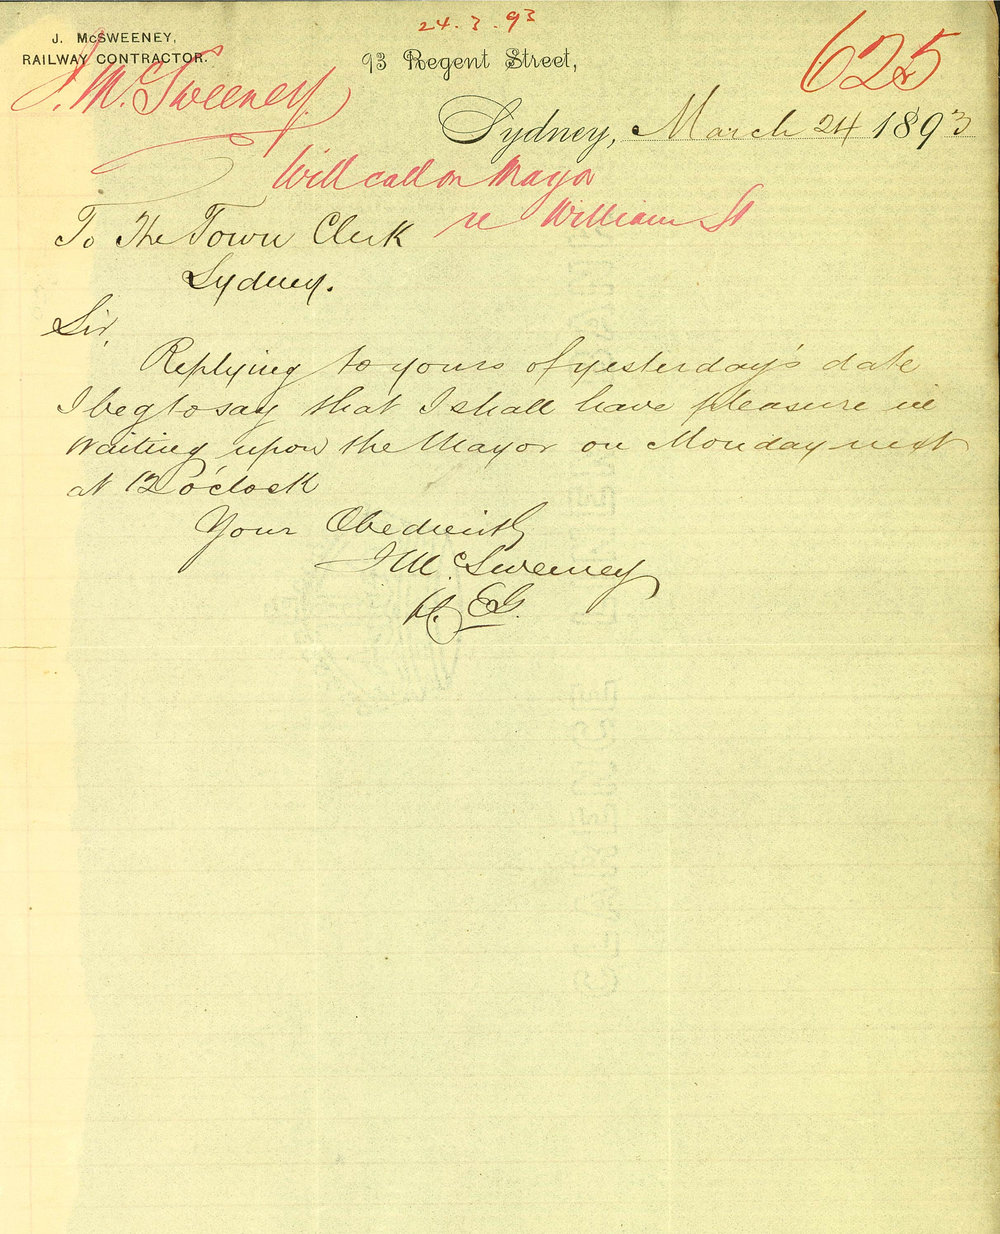 24.3.93
J. McSWEENEY,
RAILWAY CONTRACTOR.
93 Regent Street,
625
J. McSweeney
Sydney, March 24 1893
Will call on Mayor
re William St
To The Town Clerk
Sydney.
Sir,
Replying to yours of yesterday's date
I beg to say that I shall have pleasure in
waiting upon the Mayor on Monday next
at 12 o'clock
Your Obediently
J McSweeney